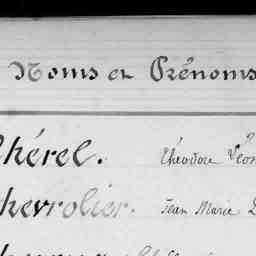 Noms et Prénoms
Chérel. Théodore Léon
Chevrolier. Jean Marie